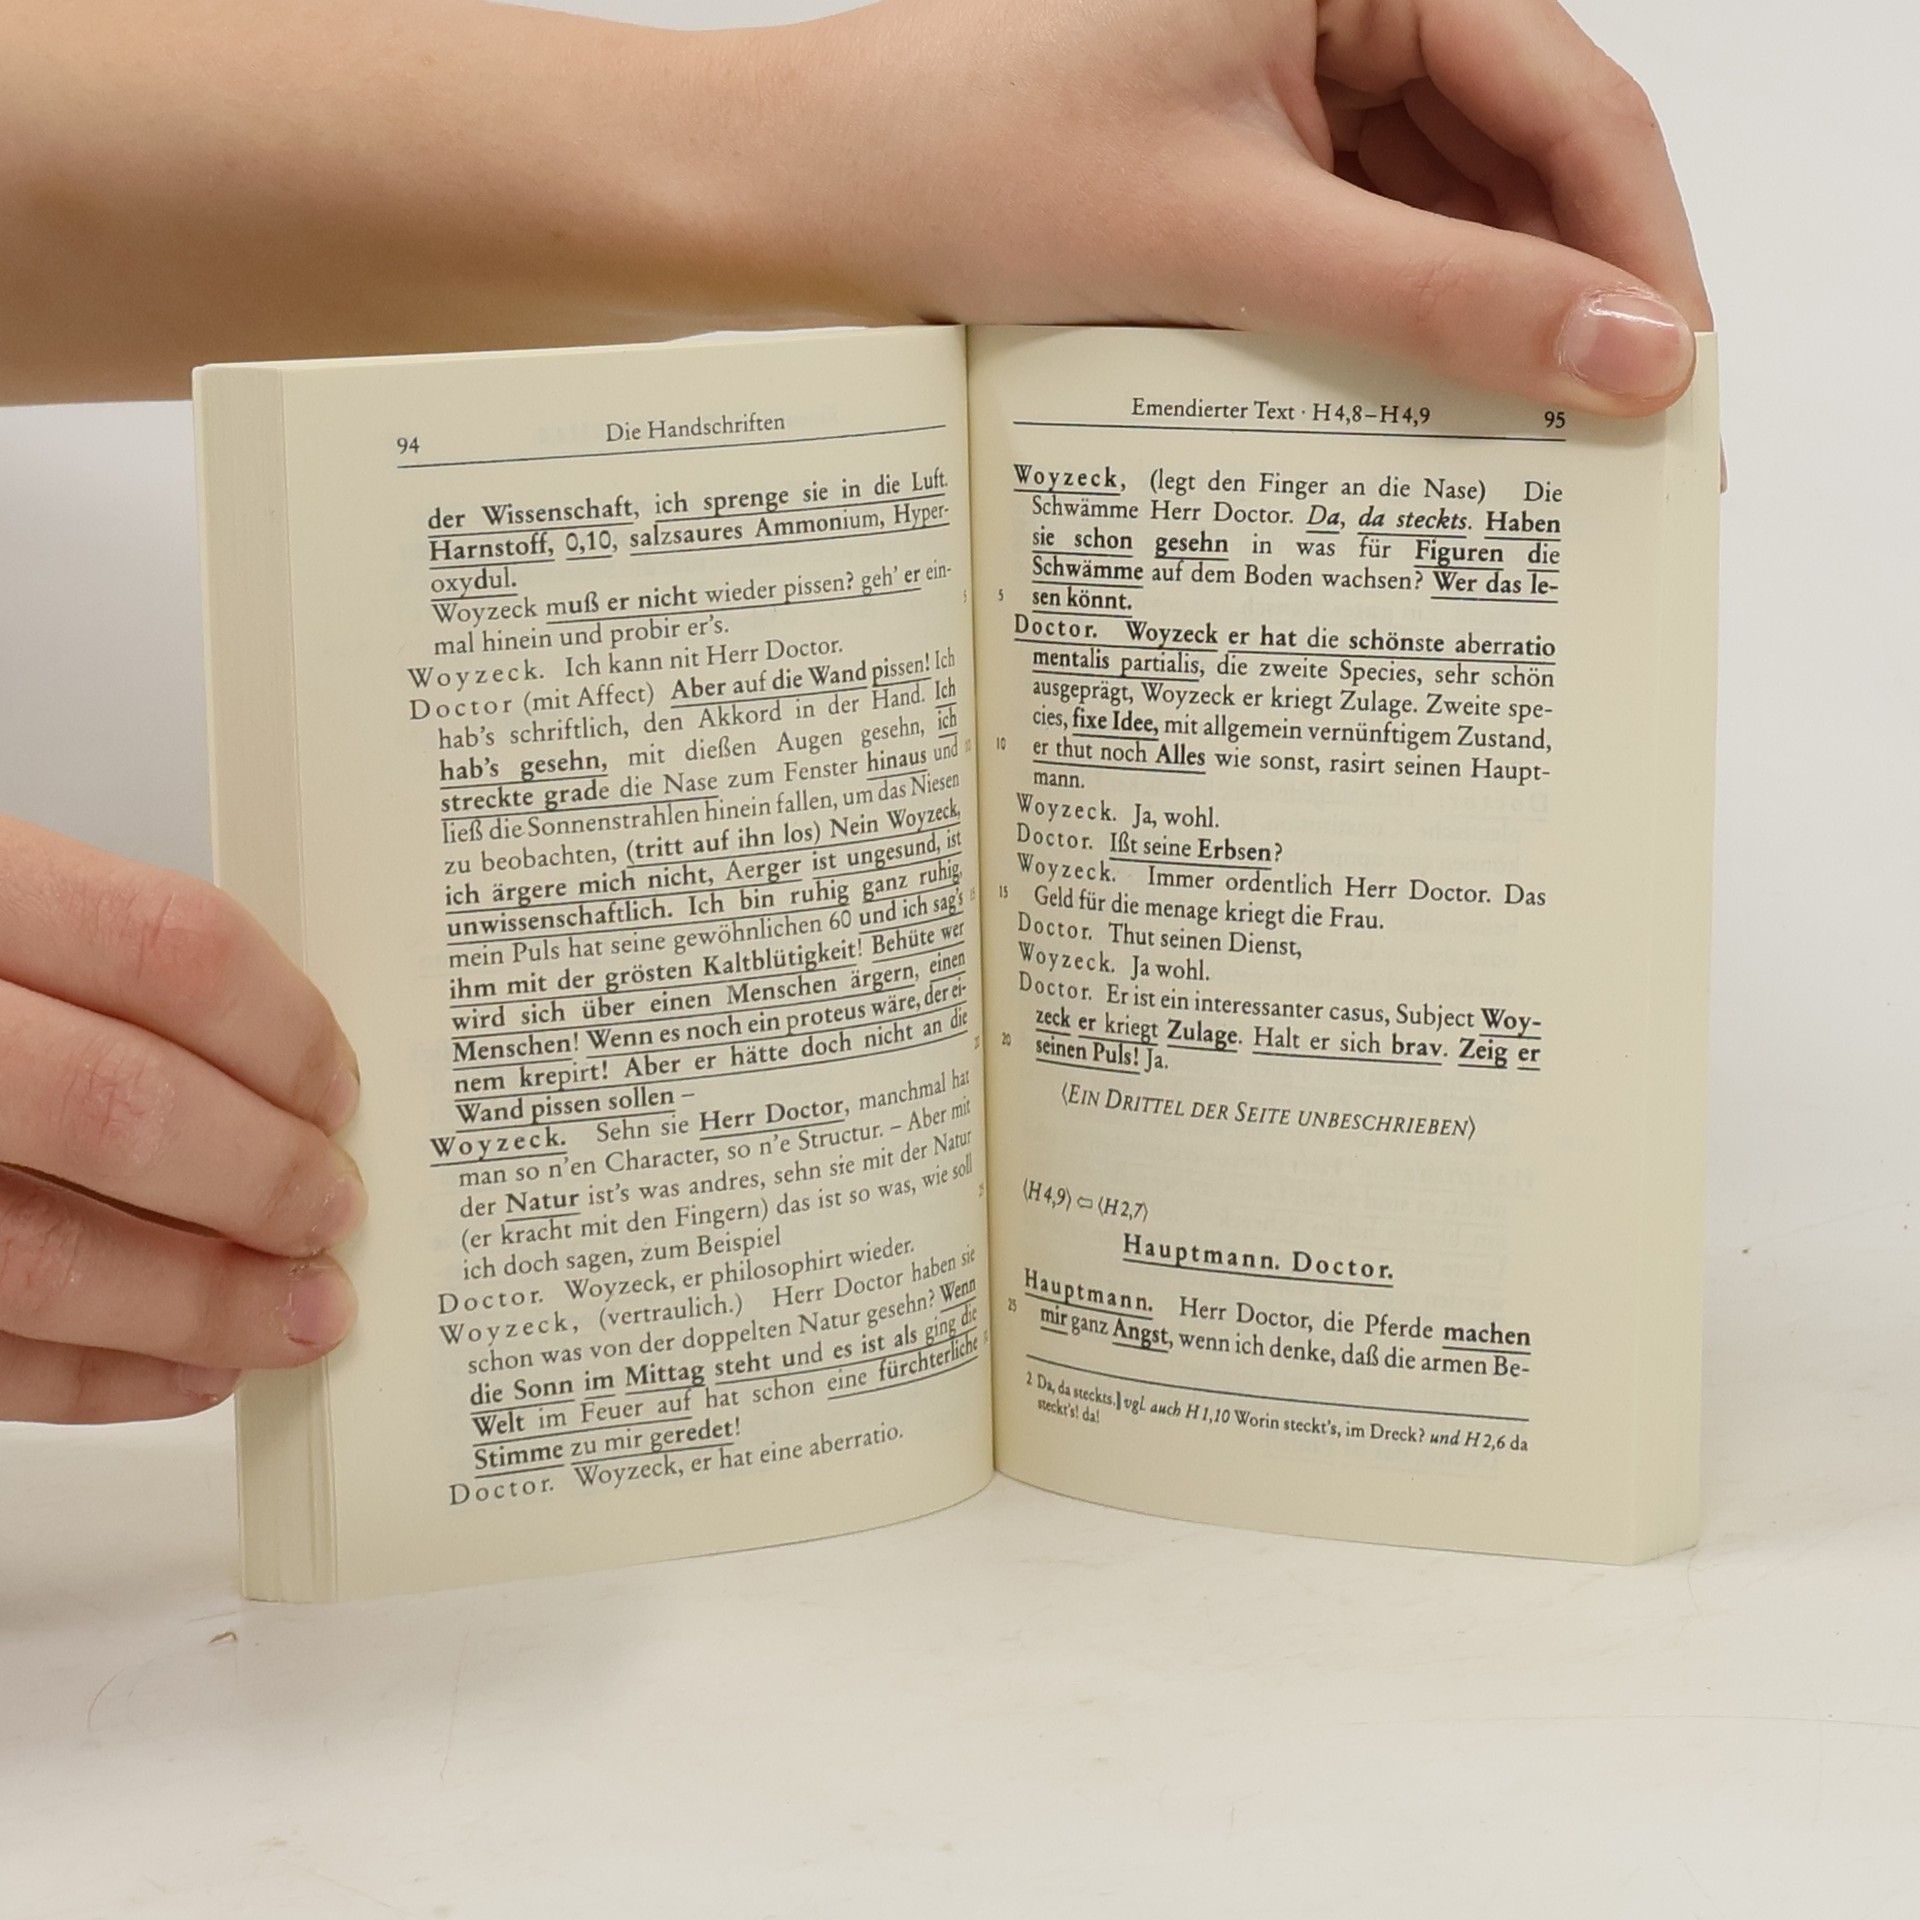 94
Die Handschriften
der Wissenschaft, ich sprenge sie in die Luft.
Harnstoff, 0,10, salzsaures Ammonium, Hyper-
oxydul.
Woyzeck muß er nicht wieder pissen? geh' er ein-
mal hinein und probir er's.
Woyzeck. Ich kann nit Herr Doctor.
Doctor (mit Affect) Aber auf die Wand pissen! Ich
hab's schriftlich, den Akkord in der Hand. Ich
hab's gesehn, mit dießen Augen gesehn, ich
streckte grade die Nase zum Fenster hinaus und
ließ die Sonnenstrahlen hinein fallen, um das Niesen
zu beobachten, (tritt auf ihn los) Nein Woyzeck,
ich ärgere mich nicht, Aerger ist ungesund, ist
unwissenschaftlich. Ich bin ruhig ganz ruhig,
mein Puls hat seine gewöhnlichen 60 und ich sag's
ihm mit der grösten Kaltblütigkeit! Behüte wer
wird sich über einen Menschen ärgern, einen
Menschen! Wenn es noch ein proteus wäre, der ei-
nem krepirt! Aber er hätte doch nicht an die
Wand pissen sollen –
Woyzeck. Sehn sie Herr Doctor, manchmal hat
man so n'en Character, so n'e Structur. – Aber mit
der Natur ist's was andres, sehn sie mit der Natur
(er kracht mit den Fingern) das ist so was, wie soll
ich doch sagen, zum Beispiel
Doctor. Woyzeck, er philosophirt wieder.
Woyzeck, (vertraulich.) Herr Doctor haben sie
schon was von der doppelten Natur gesehn? Wenn
die Sonn im Mittag steht und es ist als ging die
Welt im Feuer auf hat schon eine fürchterliche
Stimme zu mir geredet!
Doctor. Woyzeck, er hat eine aberratio.
Emendierter Text · H 4,8–H 4,9
95
Woyzeck, (legt den Finger an die Nase) Die
Schwämme Herr Doctor. Da, da steckts. Haben
sie schon gesehn in was für Figuren die
Schwämme auf dem Boden wachsen? Wer das le-
5 sen könnt.
Doctor. Woyzeck er hat die schönste aberratio
mentalis partialis, die zweite Species, sehr schön
ausgeprägt, Woyzeck er kriegt Zulage. Zweite spe-
cies, fixe Idee, mit allgemein vernünftigem Zustand,
10 er thut noch Alles wie sonst, rasirt seinen Haupt-
mann.
Woyzeck. Ja, wohl.
Doctor. Ißt seine Erbsen?
Woyzeck. Immer ordentlich Herr Doctor. Das
15 Geld für die menage kriegt die Frau.
Doctor. Thut seinen Dienst,
Woyzeck. Ja wohl.
Doctor. Er ist ein interessanter casus, Subject Woy-
zeck er kriegt Zulage. Halt er sich brav. Zeig er
20 seinen Puls! Ja.
⟨EIN DRITTEL DER SEITE UNBESCHRIEBEN⟩
⟨H 4,9⟩ ⇦ ⟨H 2,7⟩
Hauptmann. Doctor.
Hauptmann. Herr Doctor, die Pferde machen
25 mir ganz Angst, wenn ich denke, daß die armen Be-
2 Da, da steckts.] vgl. auch H 1,10 Worin steckt's, im Dreck? und H 2,6 da
steckt's! da!